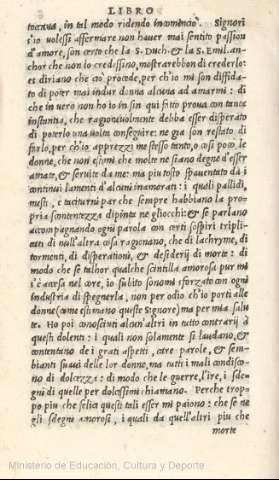 LIBRO
toccaua, in tal modo ridendo incominciò. Signori
s'io uolessi affermare non hauer mai sentito passion
d'amore, son certo che la S. Duch. & la S. Emil. an-
chor che non lo credessino, mostrarebbon di crederlo:
& diriano che ciò procede, per ch'io mi son diffida-
to di poter mai indur donna alcuna ad amarmi: di
che in uero non ho io in sin qui fatto proua con tanta
instantia, che ragioneuolmente debba esser disperato
di poterlo una uolta conseguire: ne già son restato di
farlo, per ch'io apprezzi me stesso tanto, o così poco le
donne, che non estimi che molte ne siano degne d'esser
amate, & seruite da me: ma più tosto spauentato da i
continui lamenti d'alcuni inamorati: i quali pallidi,
mesti, e taciturni par che sempre habbiano la pro-
pria scontentezza dipinta ne gliocchi: & se parlano
accompagnando ogni parola con certi sospiri tripli-
cati di null'altra cosa ragionano, che di lachryme, di
tormenti, di desperationi, & desiderij di morte: di
modo che se talhor qualche scintilla amorosa pur mi
s'è accesa nel core, io subito sonomi sforzato con ogni
industria di spegnerla, non per odio ch'io porti alle
donne (come estimano queste Signore) ma per mia salu-
te. Ho poi conosciuti alcun'altri in tutto contrarij à
questi dolenti: i quali non solamente si laudano, &
contentano de i grati aspetti, care parole, & sem-
bianti suaui delle lor donne, ma tutti i mali condisco-
no di dolcezza: di modo che le guerre, l'ire, i sde-
gni di quelle per dolcissimi chiamano. Perche trop-
po piu che felici questi tali esser mi paiono: che se ne
gli sdegni amorosi, i quali da quell'altri piu che
morte
Ministerio de Educación, Cultura y Deporte